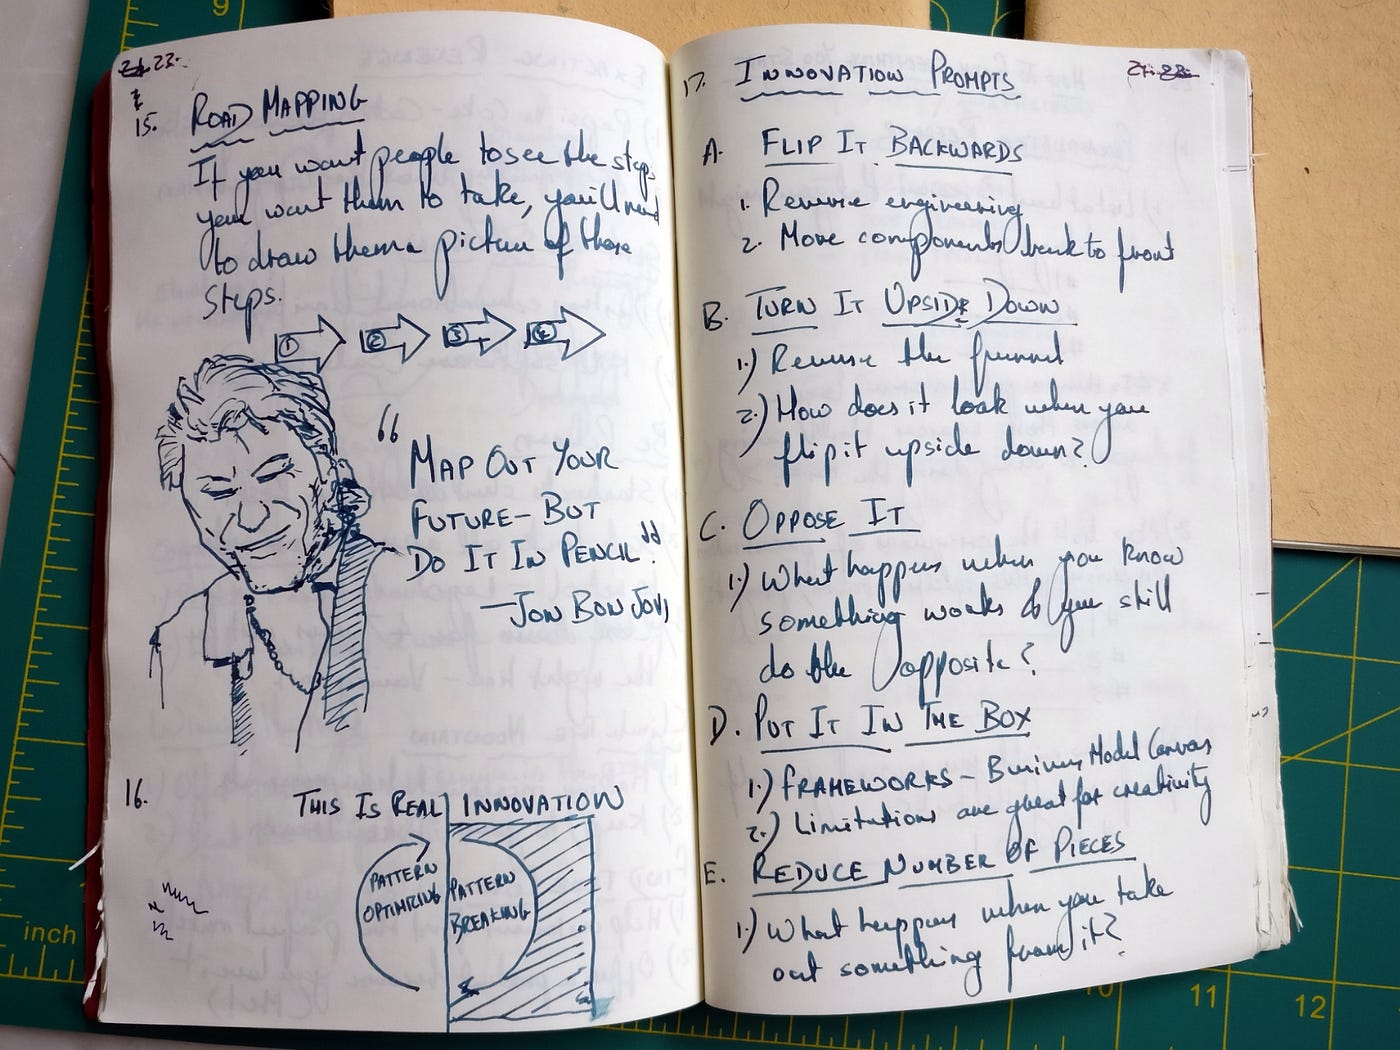 15. ROAD MAPPING
If you want people to see the steps
you want them to take, you'll need
to draw them a picture of those
steps.
1 2 3 4
"MAP OUT YOUR
FUTURE – BUT
DO IT IN PENCIL."
– JON BON JOVI
16.
THIS IS REAL INNOVATION
PATTERN
OPTIMIZING
PATTERN
BREAKING
17. INNOVATION PROMPTS
A. FLIP IT BACKWARDS
1. Reverse engineering
2. Move components back to front
B. TURN IT UPSIDE DOWN
1.) Reverse the funnel
2.) How does it look when you
flip it upside down?
C. OPPOSE IT
1.) What happens when you know
something works & you still
do the opposite?
D. PUT IT IN THE BOX
1.) FRAMEWORKS – Business Model Canvas
2.) Limitations are great for creativity
E. REDUCE NUMBER OF PIECES
1.) What happens when you take
out something from it?
inch
9
10
11
12